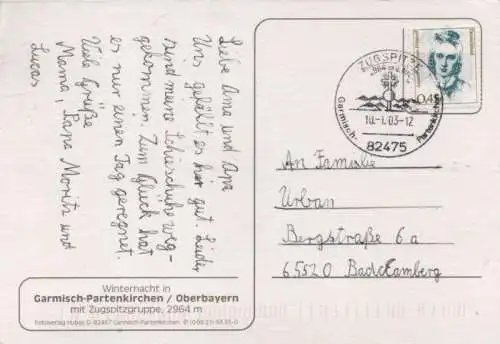 Liebe Oma und Opa
Uns gefällt es hier gut. Leider
sind meine Schieschuhe weg-
gekommen. Zum Glück hat
es nur einen Tag geregnet.
Viele Grüße
Mama, Papa Moritz und
Lucas
ZUGSPITZE
2964 m
0,45
Garmisch-Partenkirchen
10.-1.03-12
82475
An Familie
Urban
Bergstraße 6a
65520 Bad Camberg
Winternacht in
Garmisch-Partenkirchen / Oberbayern
mit Zugspitzgruppe, 2964 m
Fotoverlag Huber D-82467 Garmisch-Partenkirchen